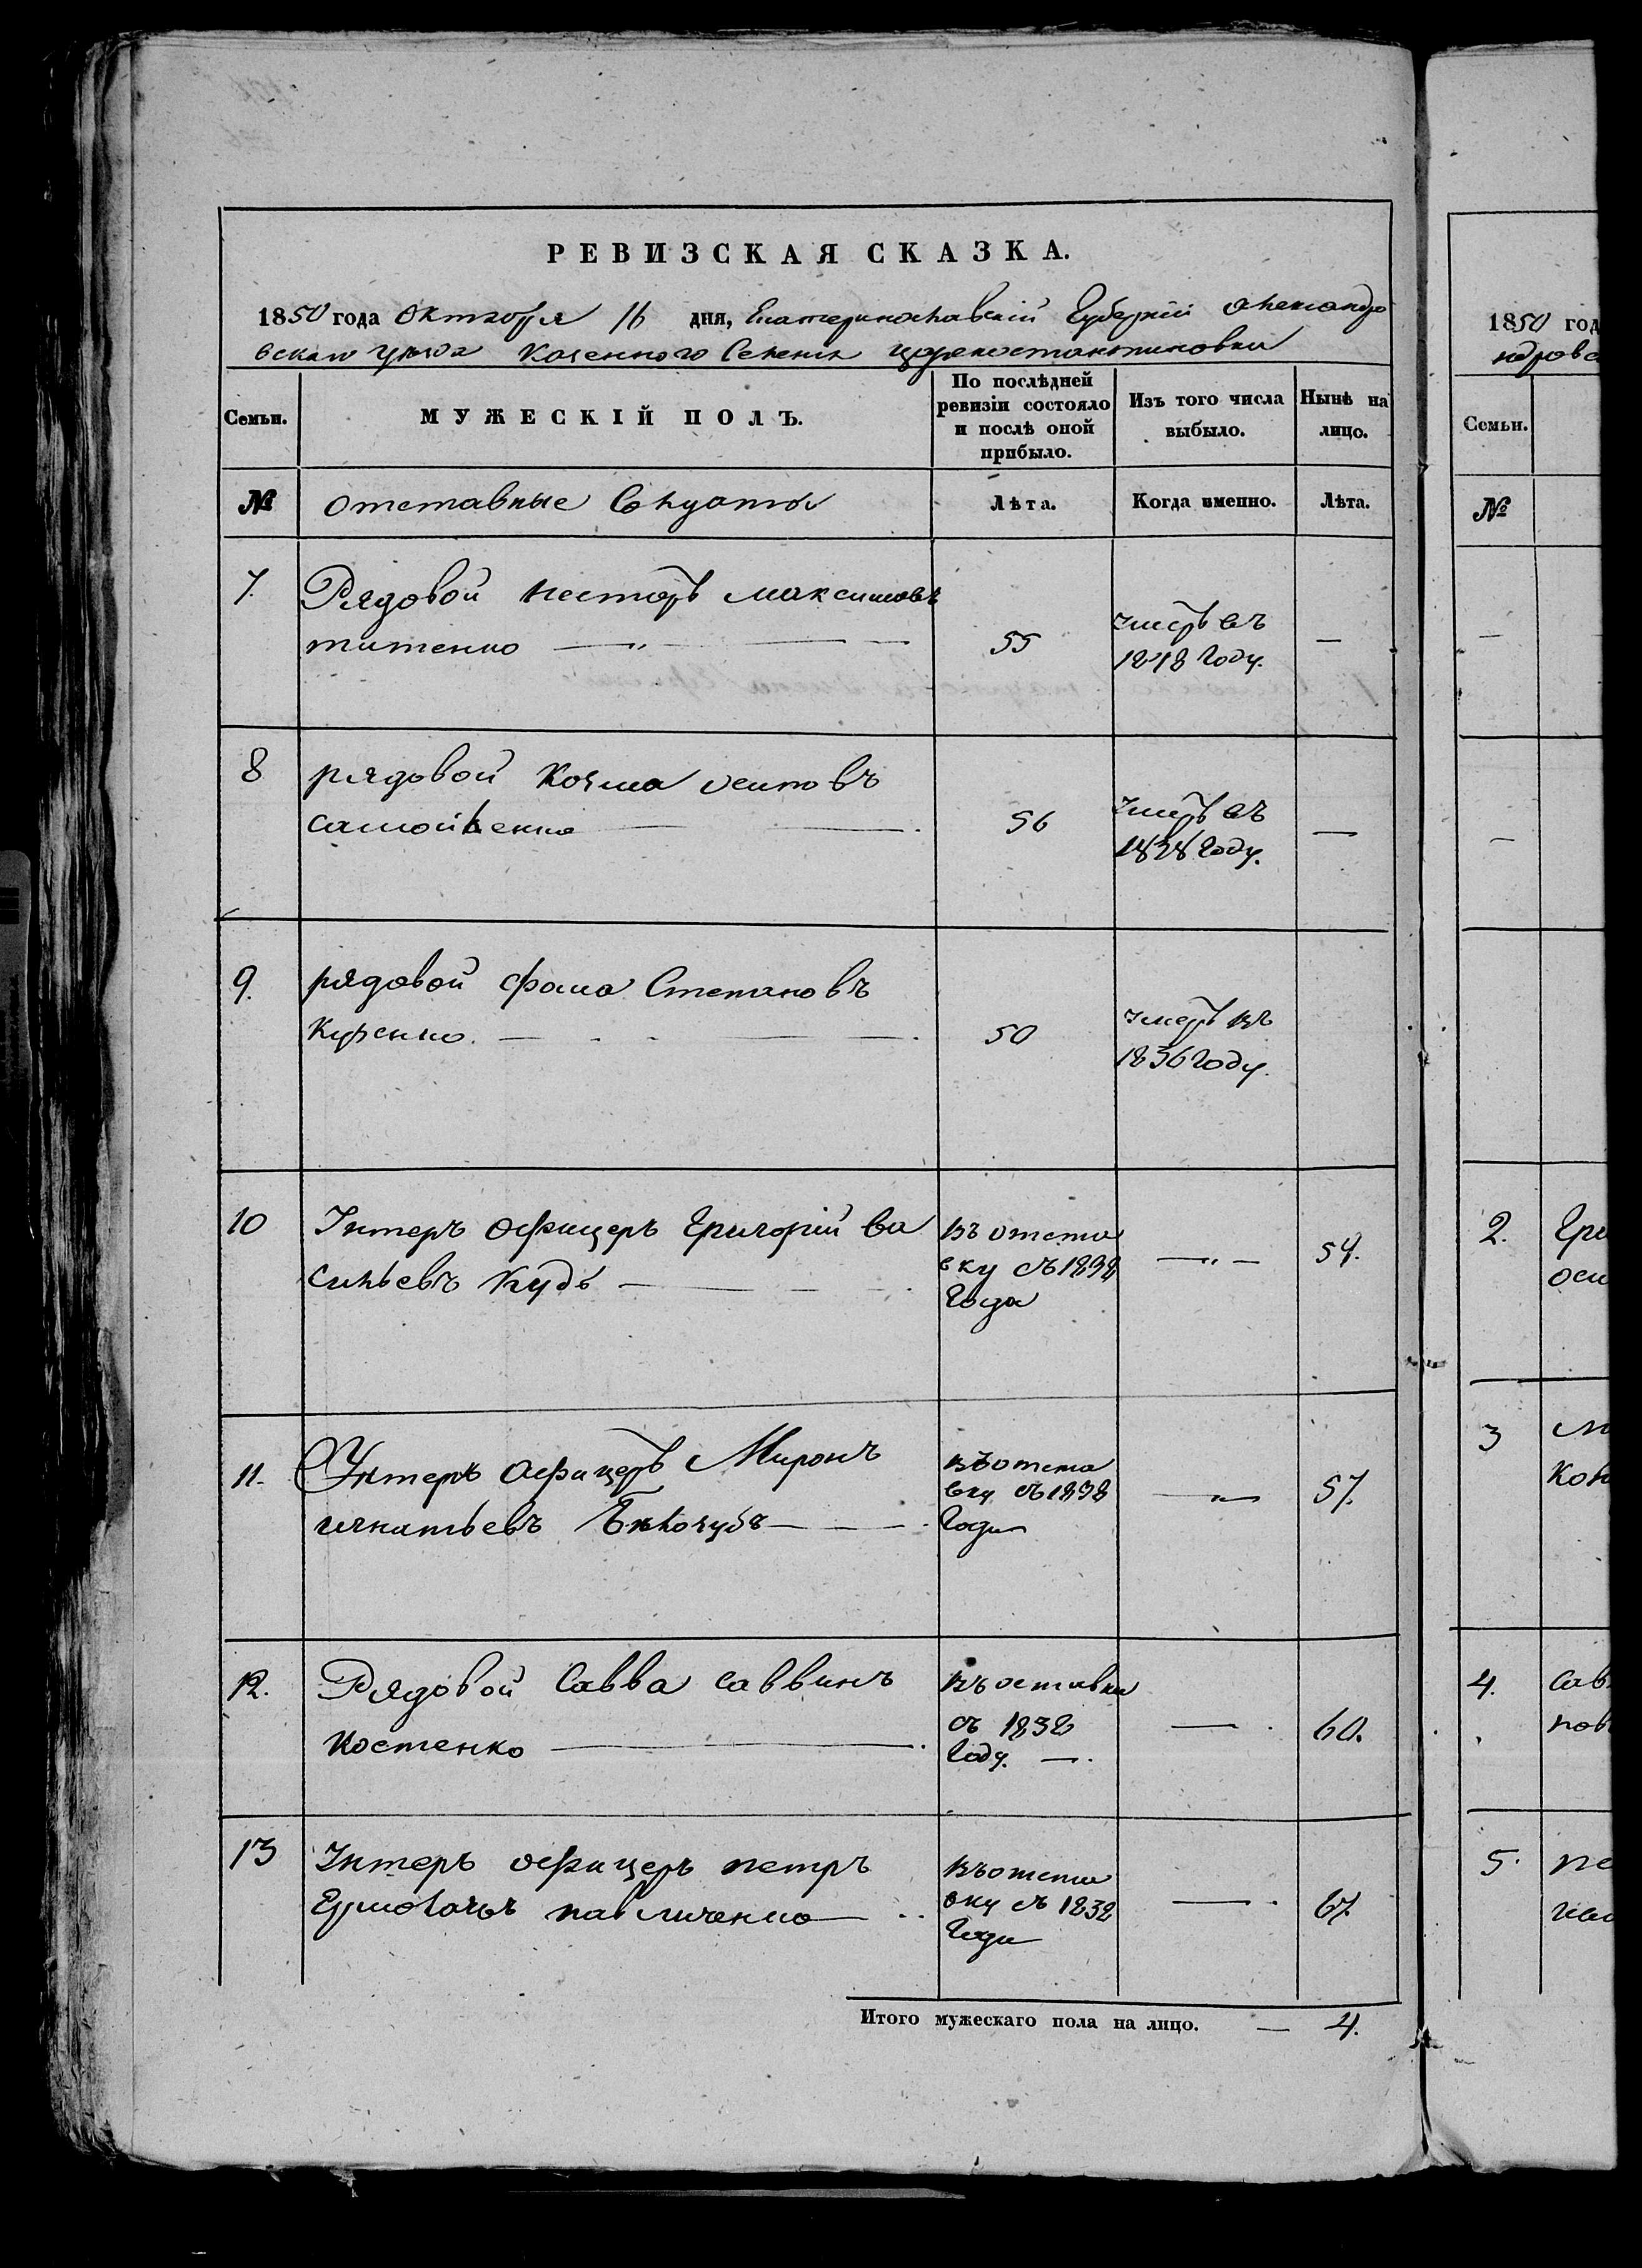 РЕВИЗСКАЯ СКАЗКА.
1850 года Октября 16 дня, Екатеринославскій Губерніи Александро
вскаго Уѣзда Казенного Селенія Цареконстантиновки
Семьи.
МУЖЕСКІЙ ПОЛЪ.
По послѣдней
ревизіи состояло
и послѣ оной
прибыло.
Изъ того числа
выбыло.
Нынѣ на
лицо.
№
отставные Солдаты
Лѣта.
Когда именно.
Лѣта.
7. Рядовой Несторъ Максимовъ
титенко — „ — 55 умеръ въ —
1848 Году.
8 рядовой Козма осиповъ
самойленко — 56 умеръ въ —
1838 Году.
9. рядовой Фома Степановъ
Куренко. — 50 умеръ въ
1836 Году.
10 Унтеръ офицеръ Григорій Ва въ отста — „ — 54.
сильевъ Кудь — вку съ 1838
Года
11. Унтеръ офицеръ Миронъ въ отста — „ — 57.
игнатьевъ Бѣлозубъ — вку съ 1838
Года
12. Рядовой Савва саввинъ въ оставки
съ 1832 — 60.
Костенко — Году. —
13 Унтеръ офицеръ петръ въ отста
Ермолаевъ павличенко — вку съ 1832 — 67.
Года
Итого мужескаго пола на лицо. — 4.
1850 год
ндровс
Семьи.
№
2. Гри
оси
3
Кон
4. Сав
5. пе